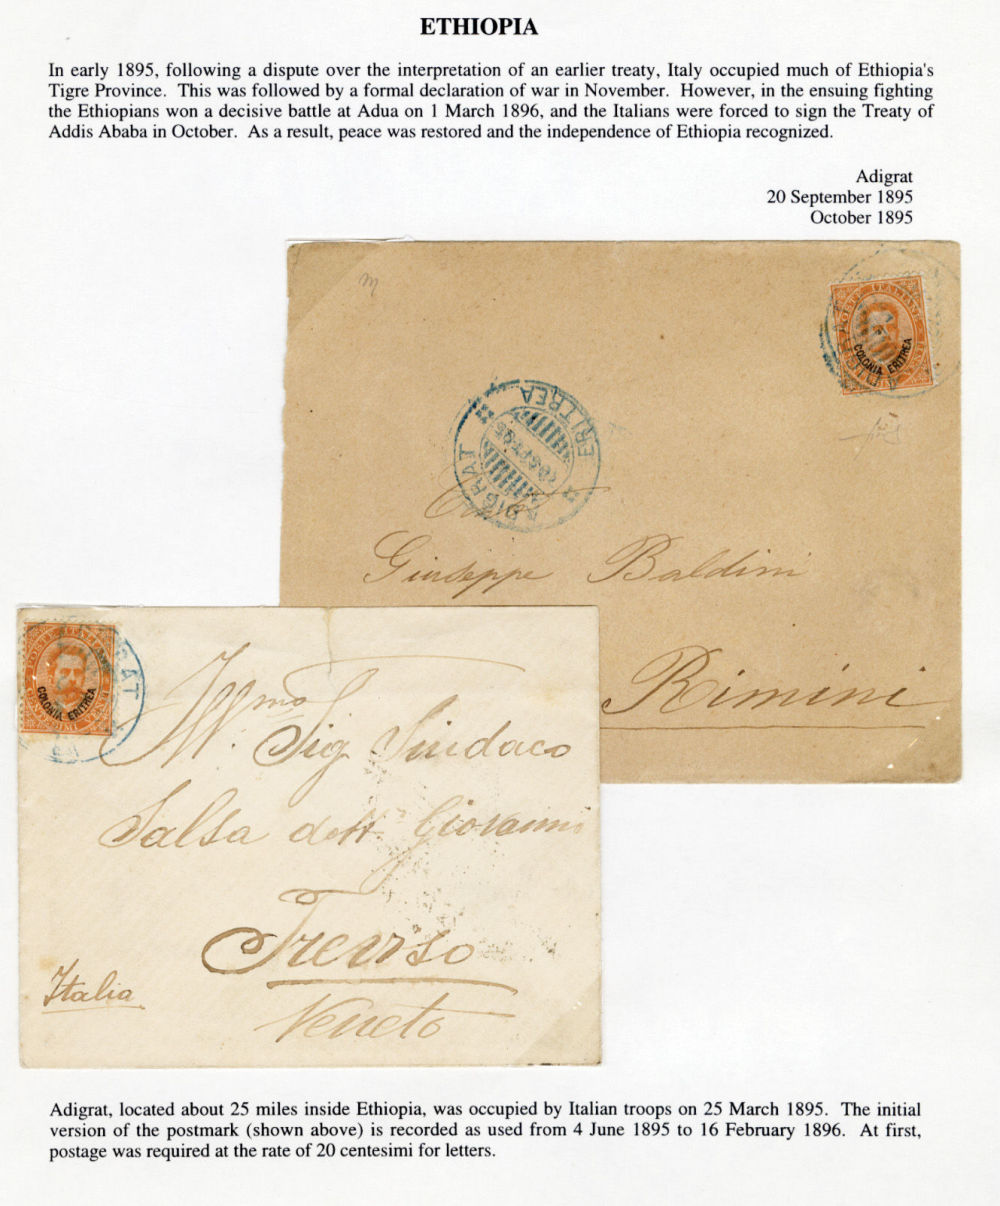 ETHIOPIA
In early 1895, following a dispute over the interpretation of an earlier treaty, Italy occupied much of Ethiopia's
Tigre Province. This was followed by a formal declaration of war in November. However, in the ensuing fighting
the Ethiopians won a decisive battle at Adua on 1 March 1896, and the Italians were forced to sign the Treaty of
Addis Ababa in October. As a result, peace was restored and the independence of Ethiopia recognized.
Adigrat
20 September 1895
October 1895
m
POSTE ITALIANE
COLONIA ERITREA
ADIGRAT
ERITREA
Giuseppe Baldini
Rimini
POSTE ITALIANE
COLONIA ERITREA
Ill.mo
Sig Sindaco
Salsa dott Giovanni
Treviso
Italia
Veneto
Adigrat, located about 25 miles inside Ethiopia, was occupied by Italian troops on 25 March 1895. The initial
version of the postmark (shown above) is recorded as used from 4 June 1895 to 16 February 1896. At first,
postage was required at the rate of 20 centesimi for letters.